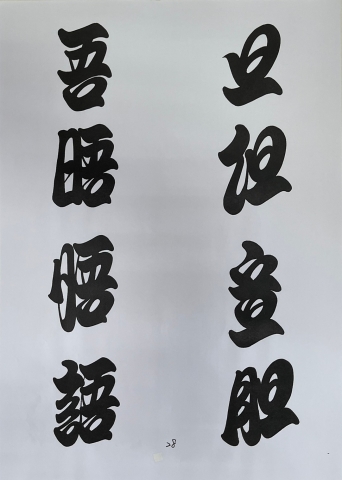 旦但胆
吾晤悟語
28